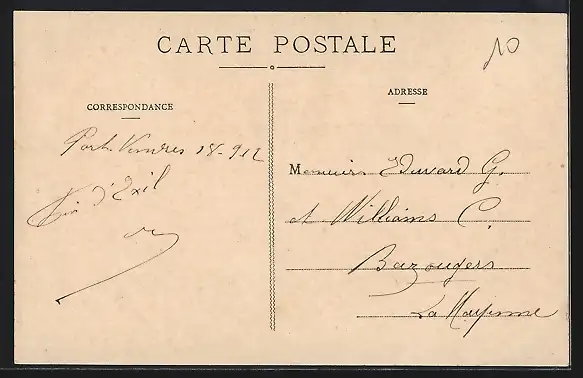 CARTE POSTALE
10
CORRESPONDANCE
ADRESSE
Port-Vendres 18-9 12
Fin d'Exil
Messieurs Eduward G.
et Williams C.
Bazougers
La Mayenne